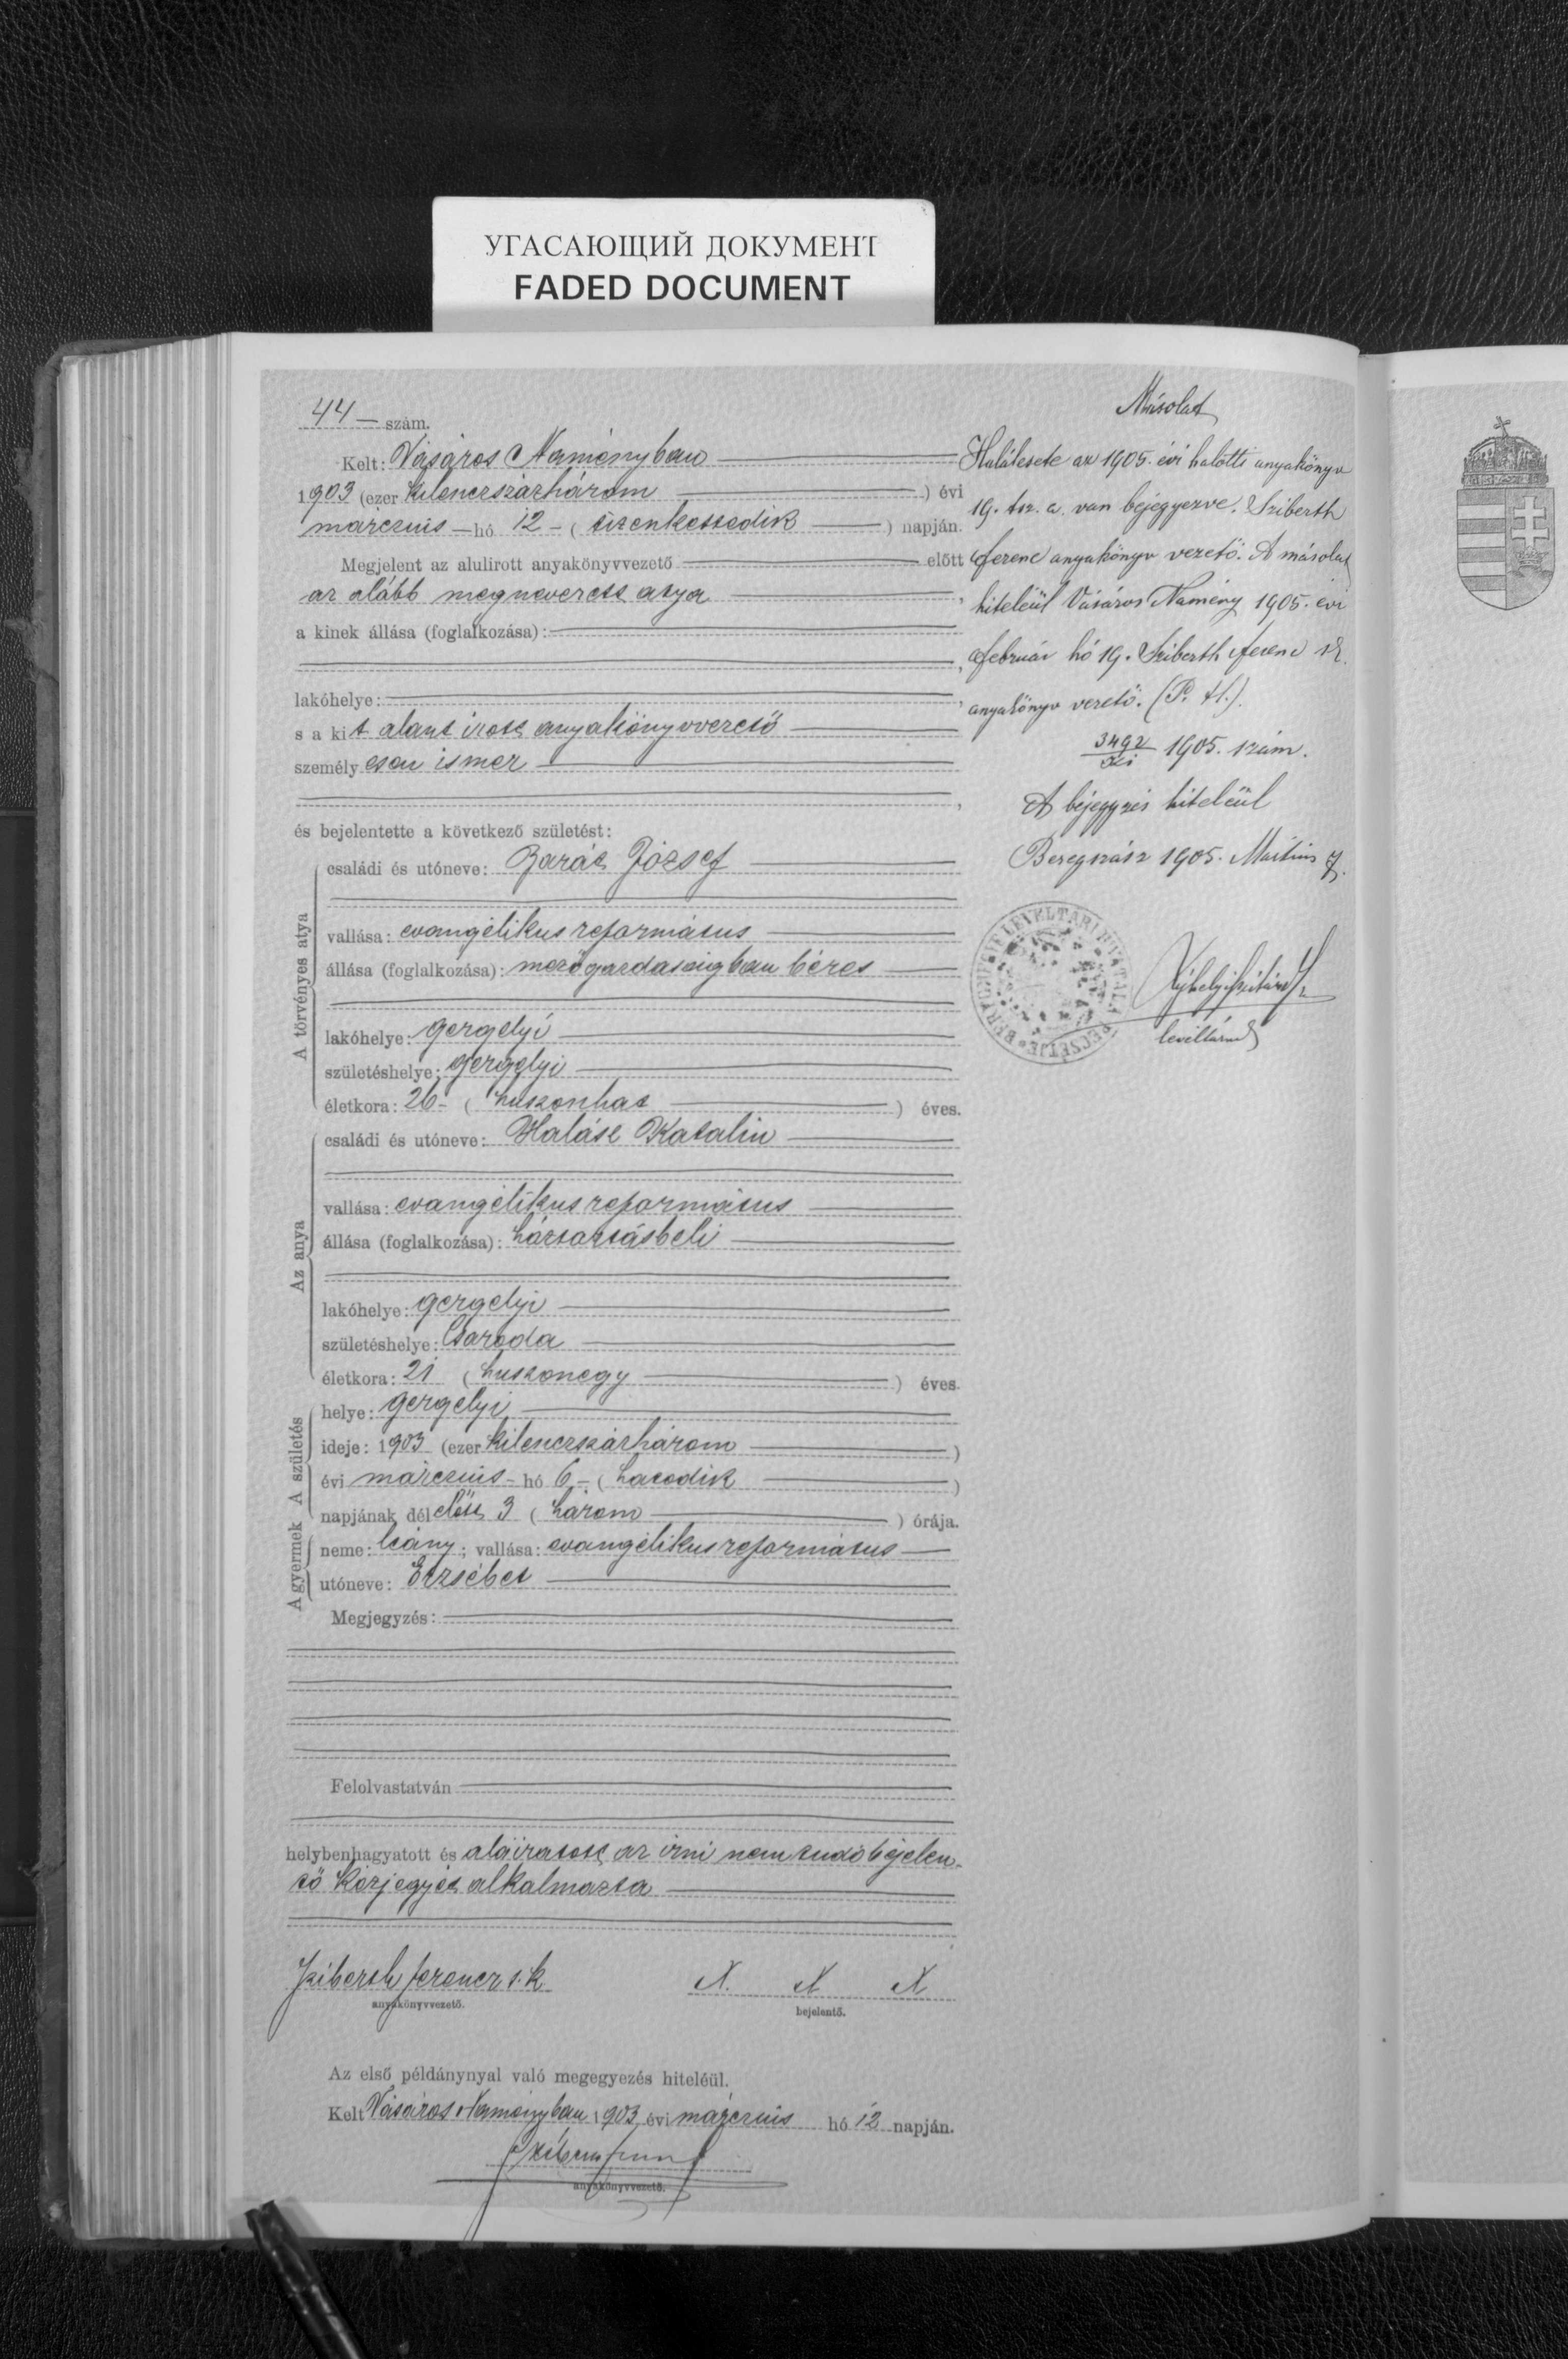 УГАСАЮЩИЙ ДОКУМЕНТ
FADED DOCUMENT
44 — szám.
Kelt: Vásáros Naményban
1903 (ezer kilenczszázhárom ) évi
márczius — hó 12 - ( tizenkettedik ) napján.
Megjelent az alulirott anyakönyvvezető előtt
az alább megnevezett atya ,
a kinek állása (foglalkozása):
,
lakóhelye: ,
s a kit alant irott anyakönyvvezető
személyesen ismer
,
és bejelentette a következő születést:
A törvényes atya
családi és utóneve: József
vallása: evangélikus református
állása (foglalkozása): mezőgazdaságban béres
lakóhelye: Gergelyi
születéshelye: Gergelyi
életkora: 26 - ( huszonhat ) éves.
Az anya
családi és utóneve: Halász Katalin
vallása: evangélikus református
állása (foglalkozása): háztartásbeli
lakóhelye: Gergelyi
születéshelye: Csaroda
életkora: 21 ( huszonegy ) éves.
A születés
helye: Gergelyi
ideje: 1903 (ezer kilenczszázhárom )
évi márczius - hó 6 - ( hatodik )
napjának délelőtt 3 ( három ) órája.
A gyermek
neme: leány; vallása: evangélikus református
utóneve: Erzsébet
Megjegyzés:
Felolvastatván
helybenhagyatott és aláiratott az irni nem tudó bejelen-
tő kézjegyét alkalmazta
Sziberth Ferencz s. k. X. X X
anyakönyvvezető. bejelentő.
Az első példánynyal való megegyezés hiteléül.
Kelt Vásáros Naményban 1903 évi márczius hó 12 napján.
anyakönyvvezető.
Másolat
Halálesete az 1905. évi halotti anyakönyv
19. tsz. a. van bejegyezve. Sziberth
Ferenc anyakönyv vezető. A másolat
hiteléül Vásáros Namény 1905. évi
február hó 19. Sziberth Ferenc sk.
anyakönyv vezető. (P. H.).
3492/ki 1905. szám.
A bejegyzés hiteléül
Beregszász 1905. Martius 7.
levéltárnok